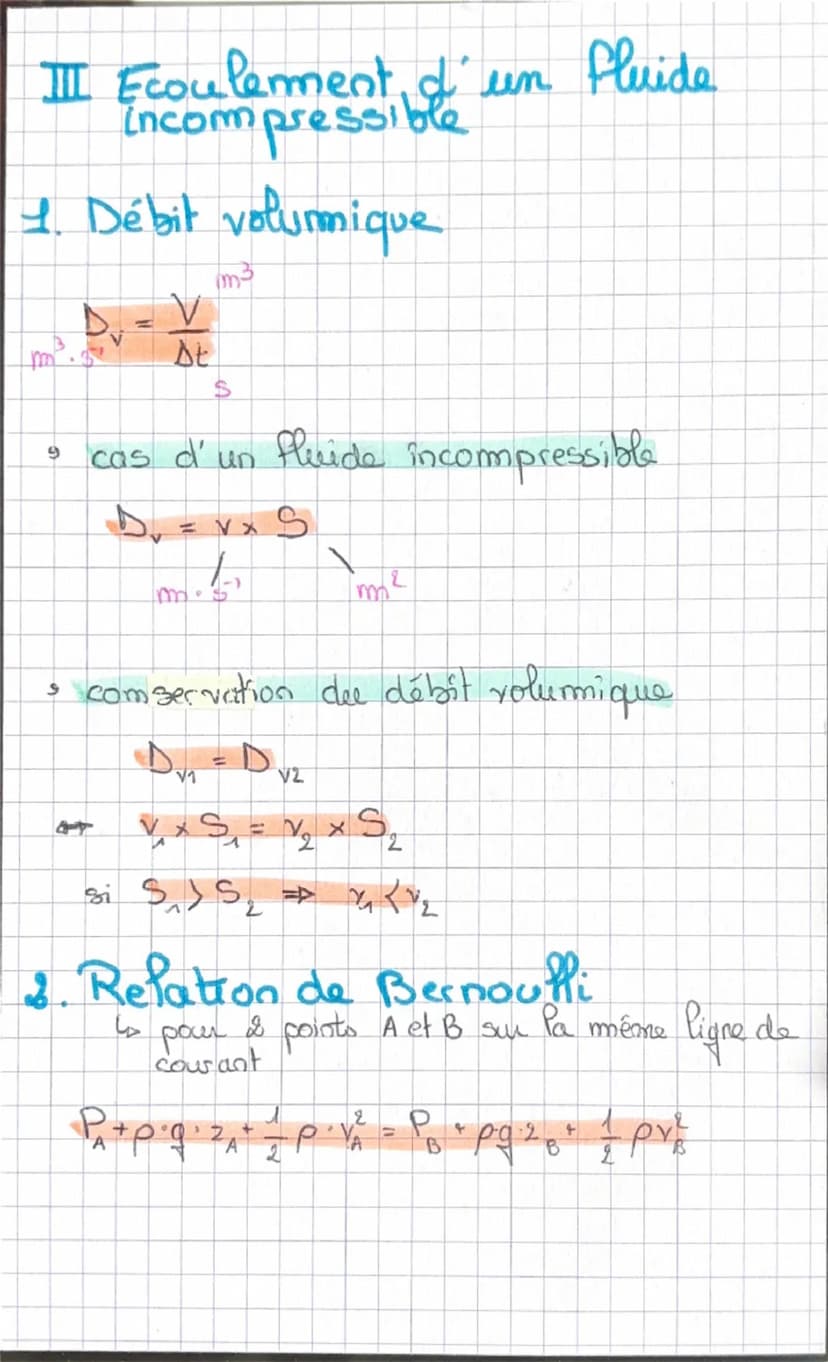 III Ecoulement d'un fluide
incompressible
1. Débit volumique
m³
D_v = V/Δt
m³·s⁻¹
s
cas d'un fluide incompressible
D_v = v × S
m·s⁻¹ m²
conservation du débit volumique
D_v1 = D_v2
↔ v₁ × S₁ = v₂ × S₂
si S₁ > S₂ ⇒ v₁ < v₂
2. Relation de Bernoulli
↳ pour 2 points A et B sur la même ligne de
courant
P_A + ρ·g·z_A + 1/2 ρ·v_A² = P_B + ρg·z_B + 1/2 ρv_B²